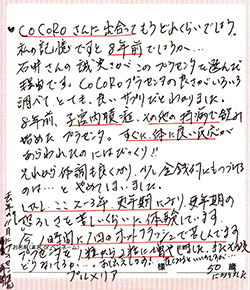 ♥ CoCoRoさんに出会ってもうどれくらいでしょう。
私の記憶ですと8年前でしょうか…
石井さんの誠実さがこのプラセンタを選んだ
理由です。CoCoRoプラセンタの良さがいろいろ
調べて、とても、良いサプリだとわかりました。
8年前、子宮内膜症、その他の持病で飲み
始めたプラセンタ。すぐに、体に良い反応が
あらわれたのにはびっくり!!
それから体調も良くなり、少し金銭的にもつづける
のは…と やめてしまいました。
しかし、ここ2〜3年、更年期になり、更年期の
恐ろしさを苦しいくらいに体験しています。
1時間に1回のホットフラッシュで苦しんでます。
プラセンタを1粒から2粒に
プルメリア
様
50歳